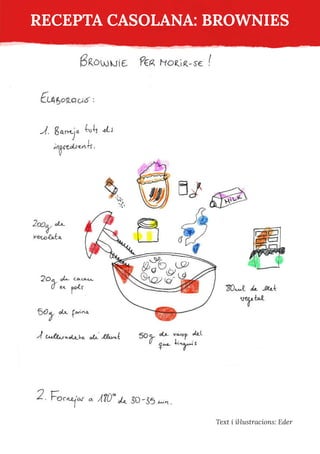 RECEPTA CASOLANA: BROWNIES
BROWNIE PER MORIR-SE!
ELABORACIÓ:
1. Barreja tots els
ingredients.
MILK
200g de
xocolata
20g de cacau
en pols
80ml de llet
vegetal
50g de farina
1 culleradeta de llevat
50g de
que tinguis
2. Fornejar a 180° de 30-35 min.
Text i il·lustracions: Eder